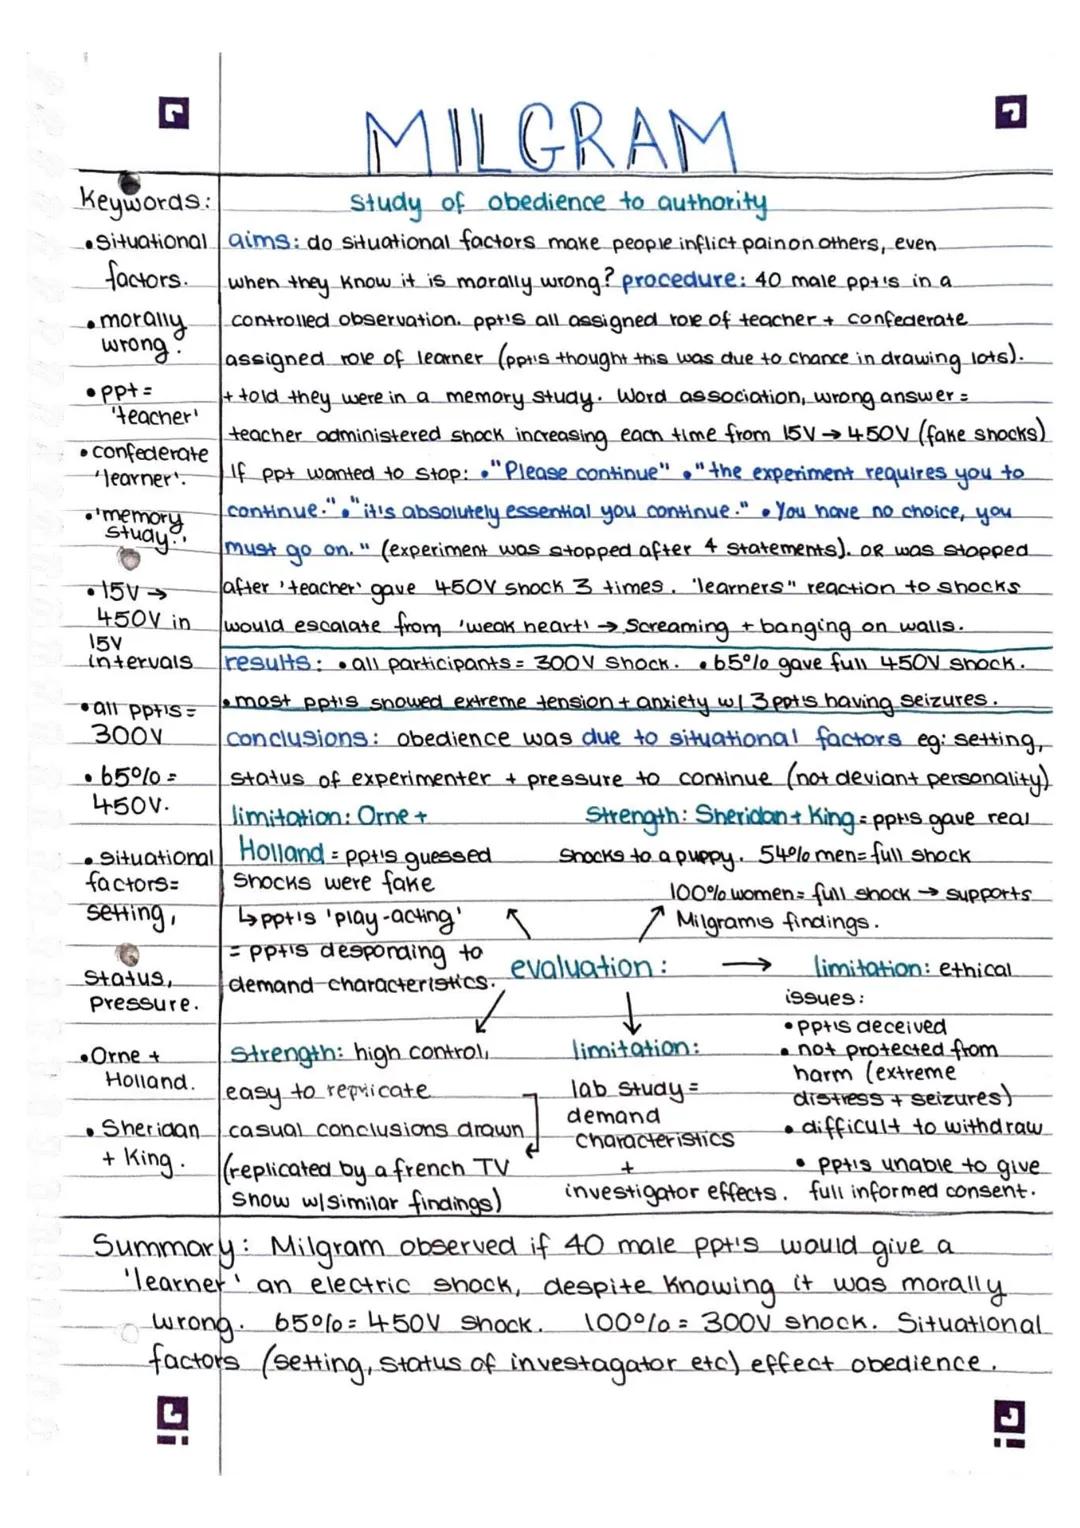 MILGRAM
Keywords:
• situational
factors.
• morally
wrong.
• ppt =
'teacher'
• confederate
'learner'.
• 'memory
study'.
• 15V →
450V in
15V
intervals
• all ppt's =
300V
• 65% =
450V.
• situational
factors=
setting,
status,
pressure.
• Orne +
Holland.
• Sheridan
+ King.
study of obedience to authority
aims: do situational factors make people inflict pain on others, even
when they know it is morally wrong? procedure: 40 male ppt's in a
controlled observation. ppt's all assigned role of teacher + confederate
assigned role of learner (ppt's thought this was due to chance in drawing lots).
+ told they were in a memory study. Word association, wrong answer =
teacher administered shock increasing each time from 15V → 450V (fake shocks)
If ppt wanted to stop: • "Please continue" • "the experiment requires you to
continue." • "it's absolutely essential you continue." • You have no choice, you
must go on." (experiment was stopped after 4 statements). OR was stopped
after 'teacher' gave 450V shock 3 times. 'learners" reaction to shocks
would escalate from 'weak heart' → Screaming + banging on walls.
results: • all participants = 300V shock. • 65% gave full 450V shock.
• most ppt's showed extreme tension + anxiety w/ 3 ppt's having seizures.
conclusions: obedience was due to situational factors eg: setting,
status of experimenter + pressure to continue (not deviant personality)
limitation: Orne +
Holland = ppt's guessed
shocks were fake
↳ ppt's 'play-acting'
= ppt's desponding to
demand characteristics.
Strength: Sheridan + King = ppt's gave real
shocks to a puppy. 54% men = full shock
100% women = full shock → supports
Milgram's findings.
evaluation:
limitation: ethical
issues:
• ppt's deceived
• not protected from
harm (extreme
distress + seizures)
• difficult to withdraw
• ppt's unable to give
full informed consent.
Strength: high control,
easy to replicate
casual conclusions drawn
(replicated by a french TV
show w/ similar findings)
limitation:
lab study =
demand
characteristics
+
investigator effects.
Summary: Milgram observed if 40 male ppt's would give a
'learner' an electric shock, despite knowing it was morally
wrong. 65% = 450V shock. 100% = 300V shock. Situational
factors (setting, status of investagator etc) effect obedience.